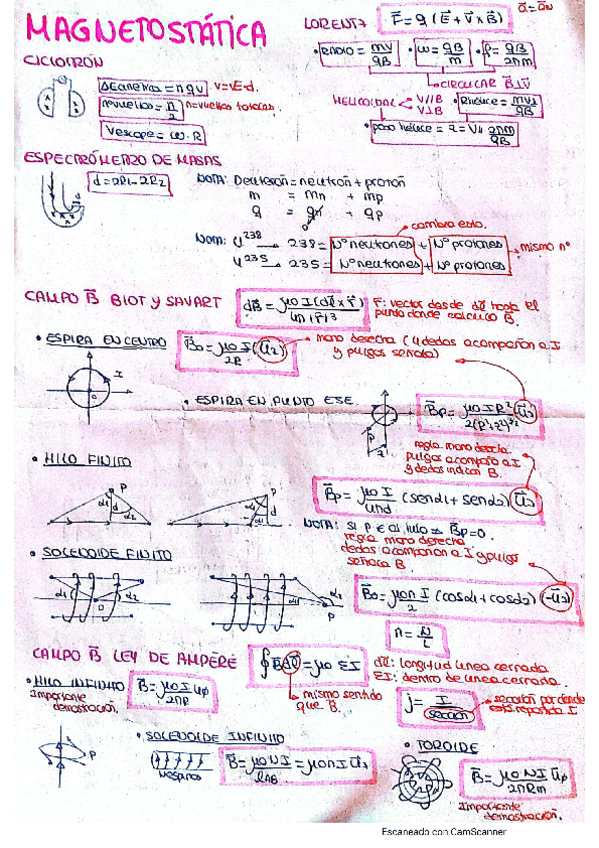 MAGNETOSTÁTICA
LORENTZ F = q (E + V x B)
a = an
CICLOTRÓN
• RADIO = mv/qB • ω = qB/m • f = qB/2πm
CIRCULAR B⊥V
ΔEcinética = nqV V = E·d.
nvueltas = n/2 nvueltas totales.
Vescape = ω·R
HELICOIDAL V//B V⊥B • Rhélice = mv⊥/qB
• paso hélice = z = V// 2πm/qB
ESPECTRÓMETRO DE MASAS
d = 2R1 - 2R2
NOTA: Deuterón = neutrón + protón
m = mn + mp
q = qn + qp
cambia esto.
Nom: U238 → 238 = Nº neutrones + Nº protones
mismo nº
U235 → 235 = Nº neutrones + Nº protones
CAMPO B BIOT y SAVART dB = μ0 I (dl x r) / 4π |r|3
r: vector desde dl hasta el
punto donde calculo B.
• ESPIRA EN CENTRO B0 = μ0 I/2R (u2)
mano derecha (4 dedos acompañan a I
y pulgar señala)
I
0
• ESPIRA EN PUNTO EJE
Bp = μ0 I R2 / 2(R2+z2)3/2 (u2)
regla mano derecha
pulgar acompaña a I
y dedos indican B.
• HILO FINITO
P
α1 d α2
P
Bp = μ0 I/4πd (senα1 + senα2)
NOTA: Si P ∈ al hilo ⇒ Bp = 0.
regla mano derecha
dedos acompañan a I y pulgar
señala B.
• SOLENOIDE FINITO
α1 0 α2
α1 α2 P
B0 = μ0 n I/2 (cosα1 + cosα2) (-u2)
n = N/L
CAMPO B LEY DE AMPÈRE ∮ B dl = μ0 ΣI
dl: longitud línea cerrada
ΣI: dentro de línea cerrada.
mismo sentido
que B.
• HILO INFINITO B = μ0 I/2πR uφ
Importante
demostración.
j = I/sección
sección por donde
está repartida I
P
• SOLENOIDE INFINITO
N espiras
B = μ0 N I/LAB = μ0 n I u2
• TOROIDE
B = μ0 N I/2πRm uφ
Importante
demostración.
Escaneado con CamScanner